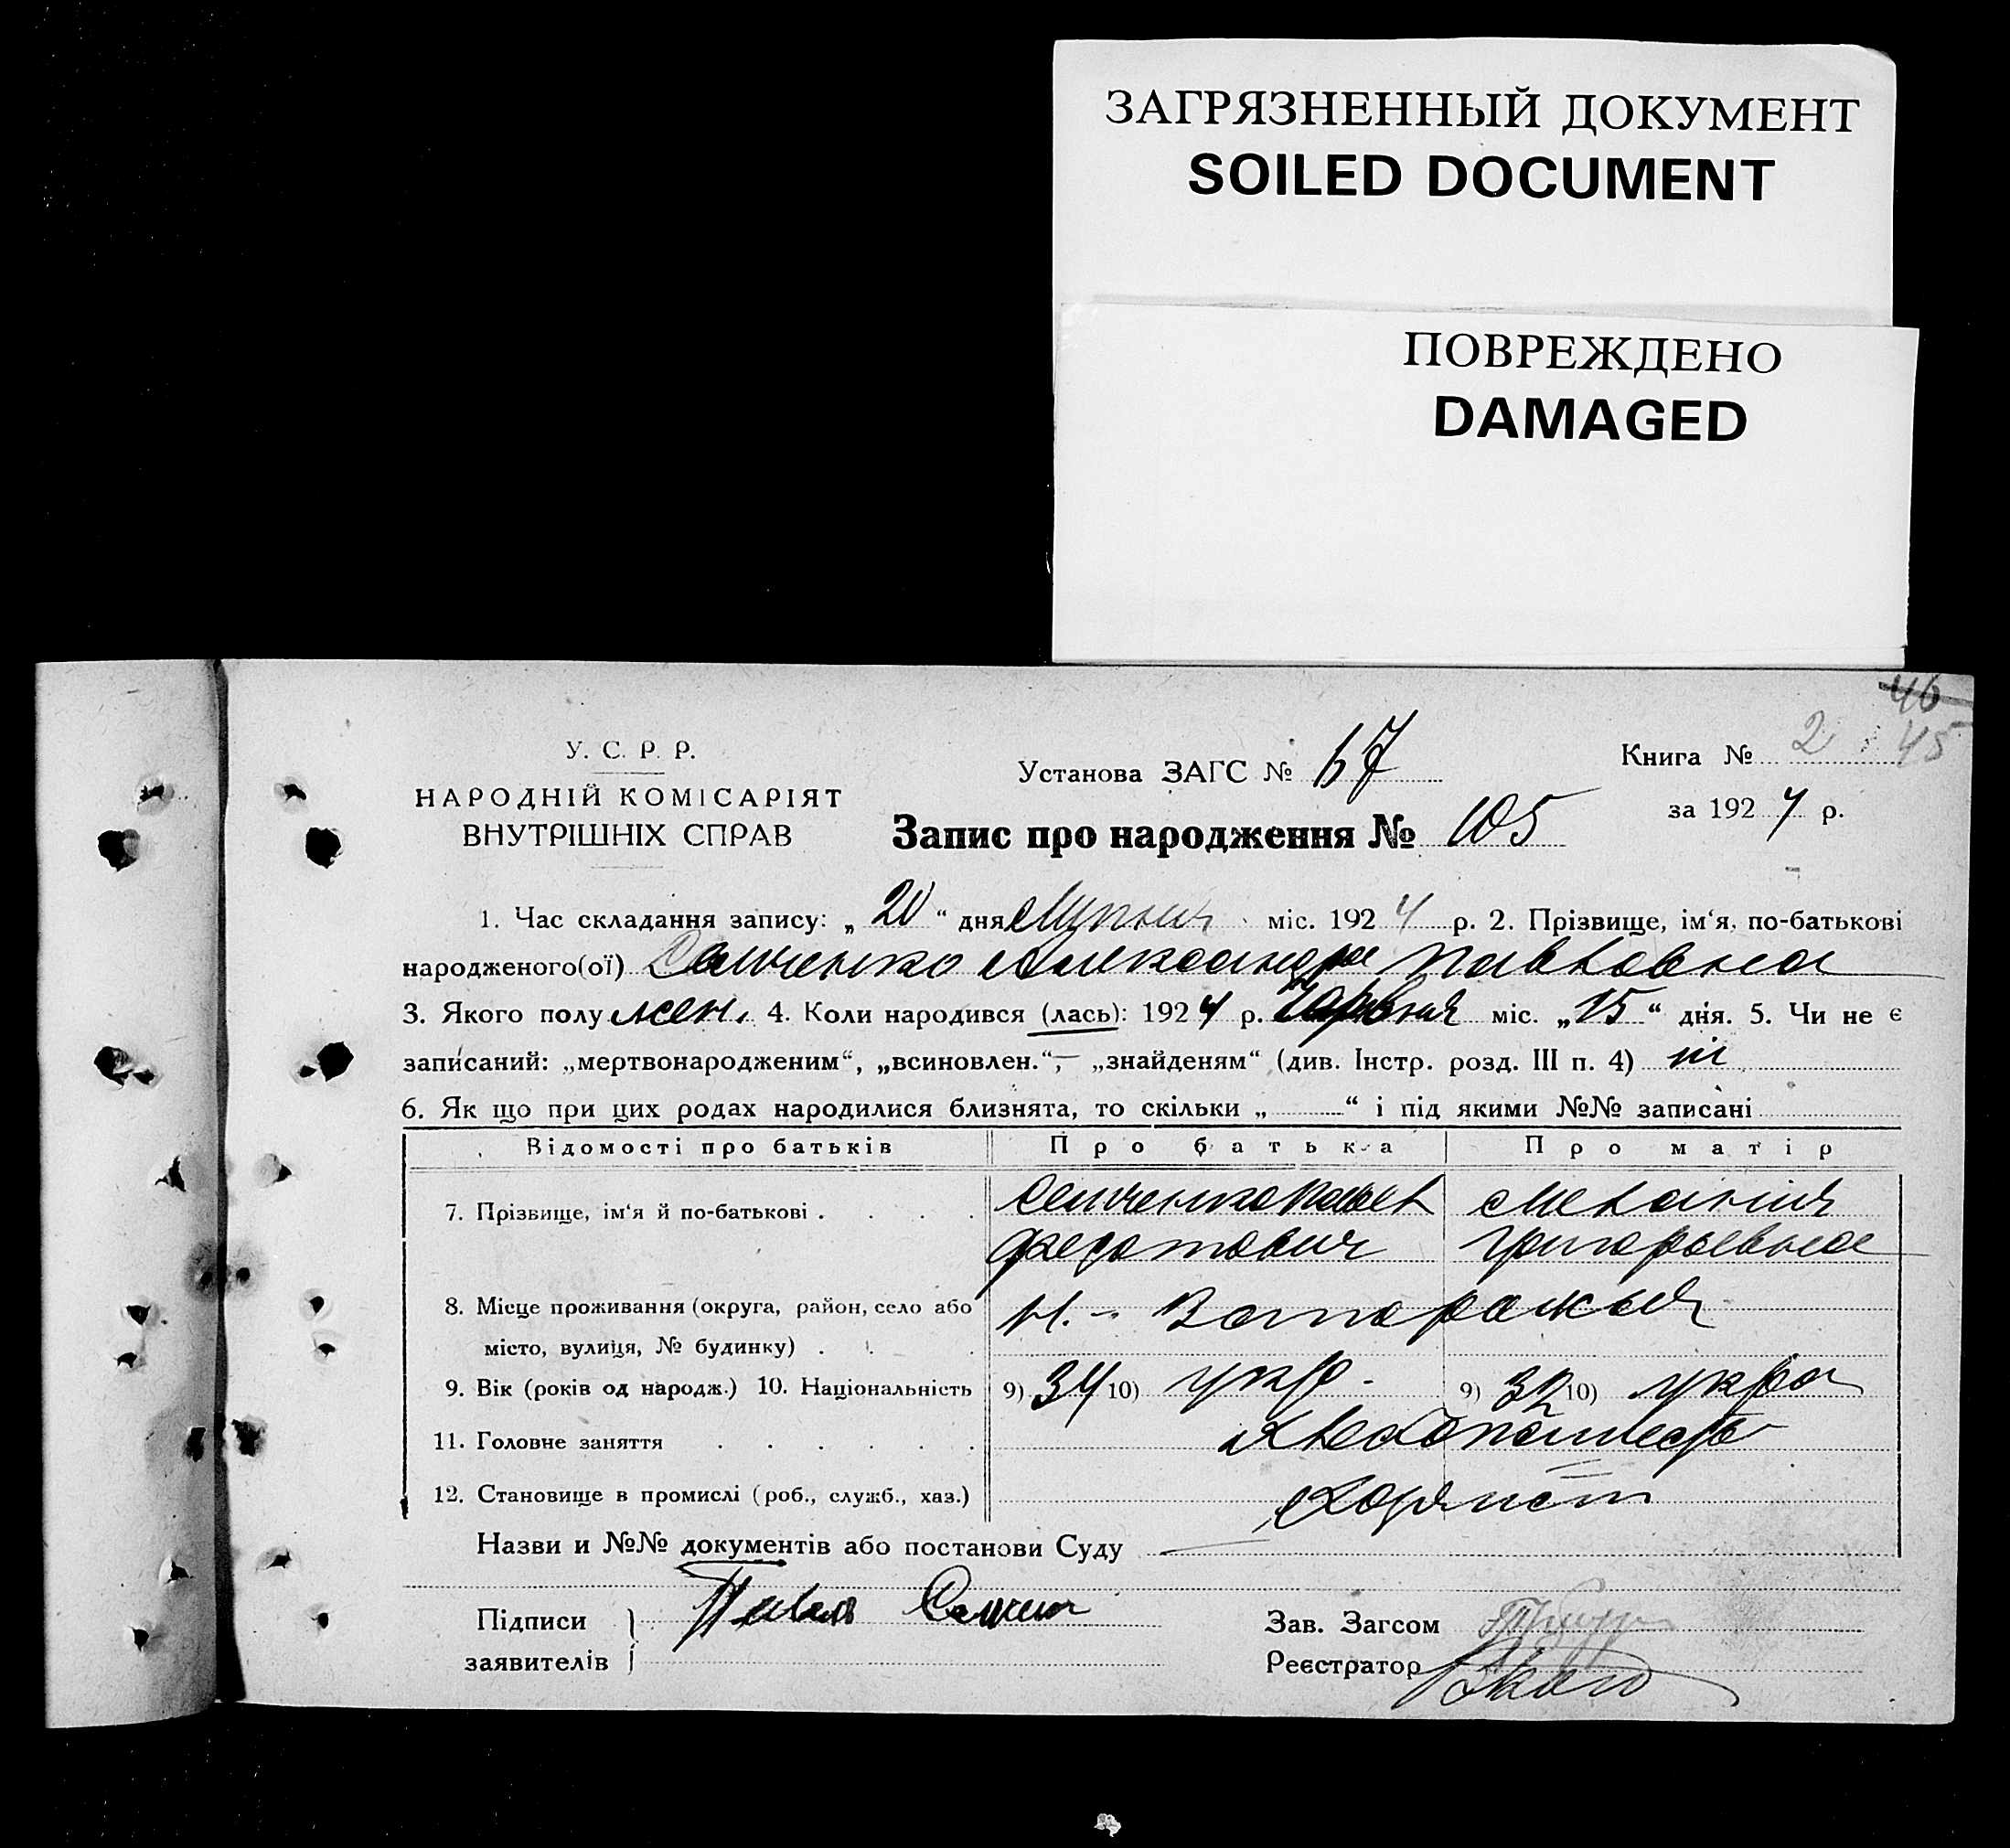 ЗАГРЯЗНЕННЫЙ ДОКУМЕНТ
SOILED DOCUMENT
ПОВРЕЖДЕНО
DAMAGED
46
45
У. С. Р. Р.
НАРОДНІЙ КОМІСАРІЯТ
ВНУТРІШНІХ СПРАВ
Установа ЗАГС №
Книга № 2
за 1924 р.
Запис про народження № 105
1. Час складання запису: „20“ дня Липня міс. 1924 р. 2. Прізвище, ім‘я, по-батькові
народженого(ої) Александра Павловна
3. Якого полу жен. 4. Коли народився (лась): 1924 р. Червня міс. „15“ дня. 5. Чи не є
записаний: „мертвонародженим“, „всиновлен.“, „знайденям“ (див. Інстр. розд. III п. 4) ні
6. Як що при цих родах народилися близнята, то скільки „ “ і під якими №№ записані
Відомості про батьків Про батька Про матір
7. Прізвище, ім‘я й по-батькові . . . . Семченко Павел Мелания
Федотович Григорьевна
8. Місце проживання (округа, район, село або
місто, вулиця, № будинку) . . . Н.-Запорожья
9. Вік (років од народж.) 10. Національність 9) 34 10) укр. 9) 32 10) укра
11. Головне заняття . . . . . . Хлебопашеств
12. Становище в промислі (роб., служб., хаз.)
Назви и №№ документів або постанови Суду
Підписи
заявителів
Павел
Зав. Загсом
Реєстратор